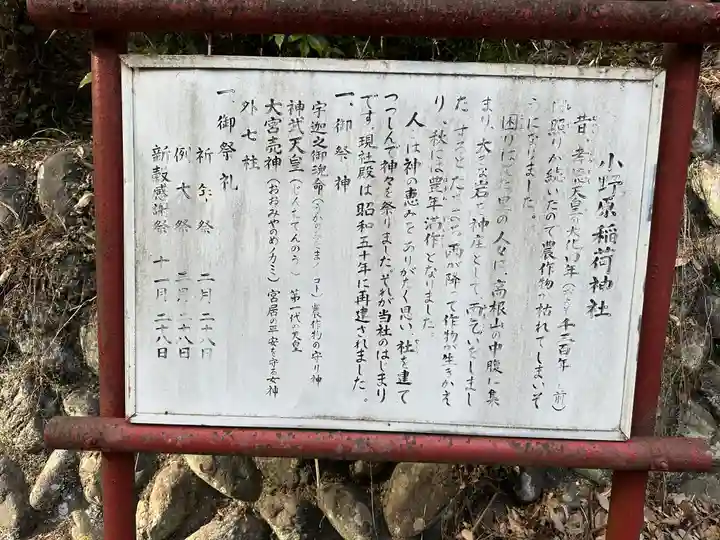 小野原稲荷神社
昔、孝徳天皇の大化四年（千三百年 前）
照りが続いたので農作物が枯れてしまいそ
うになりました。
困りはてた里の人々は、高根山の中腹に集
まり、大きな岩を神座として雨乞いをしまし
た。するとたちまち雨が降って作物が生きかえ
り、秋には豊年満作となりました。
人々は神の恵みをありがたく思い、社を建て
つつしんで神々を祭りました。それが当社のはじまり
です。現社殿は昭和五十年に再建されました。
一、御祭神
宇迦之御魂命（うかのみたまノミコト）農作物の守り神
神武天皇（じんむてんのう）第一代の天皇
大宮売神（おおみやのめノカミ）宮居の平安を守る女神
外七柱
一、御祭礼
祈年祭 二月二十八日
例大祭 三月二十八日
新穀感謝祭 十一月二十八日